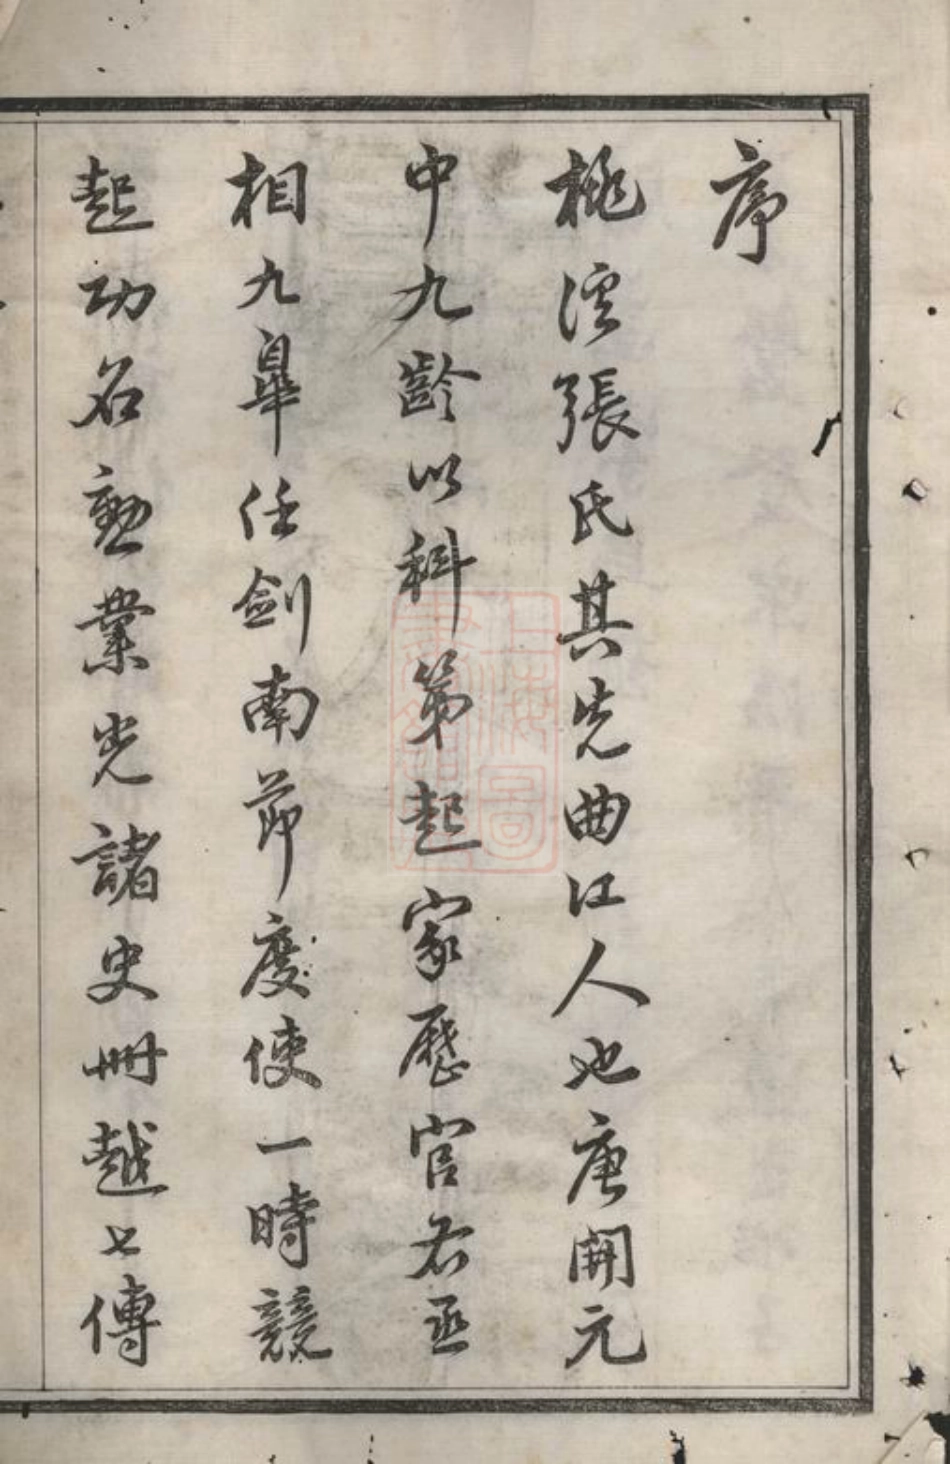 序
桃溪張氏其先曲江人也唐開元
中九齡以科第起家歷官右丞
相九皋任劍南節度使一時競
起功名勳業光諸史冊越七傳
上海圖書館藏